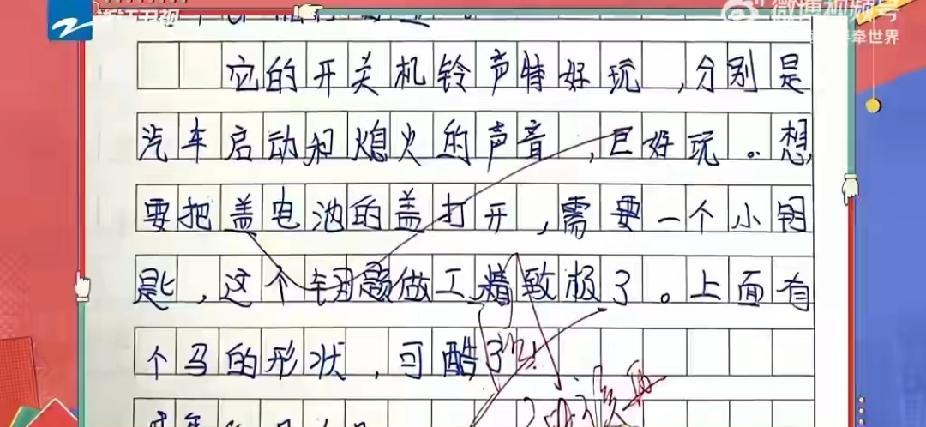 浙江卫视
微博视频号
牵世界
它的开关机铃声特好玩,分别是
汽车启动和熄火的声音,巨好玩。想
要把盖电池的盖打开,需要一个小钥
匙,这个钥匙做工精致极了。上面有
个马的形状,可酷了